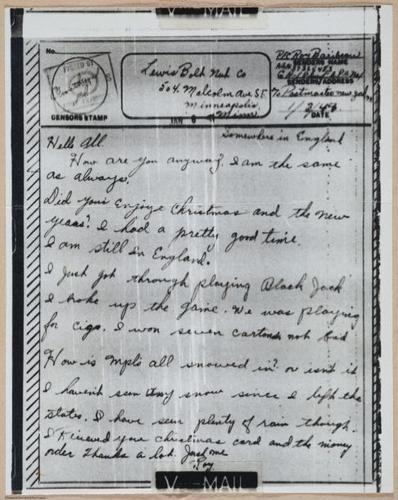 V··· — MAIL
No.
CENSORS STAMP
Lewis Bolt Nut Co
504. Malcolm Ave S E
Minneapolis
Minn
JAN 6
Pvt Roy
SENDERS NAME
SENDERS ADDRESS
To Postmaster new york
DATE
Somewhere in England
Hello All
How are you anyway. I am the same
as always.
Did your Enjoye Christmas and the new
years? I had a pretty good time.
I am still in England.
I Just got through playing Black Jack
I broke up the game. We was playing
for cigs. I won seven cartons not bad
How is Mpls all snowed in? or isn't it
I havent seen any snow since I left the
States. I have seen plenty of rain though.
I Recieved your christmas card and the money
order Thanks a lot. Just me
Roy
V··· — MAIL